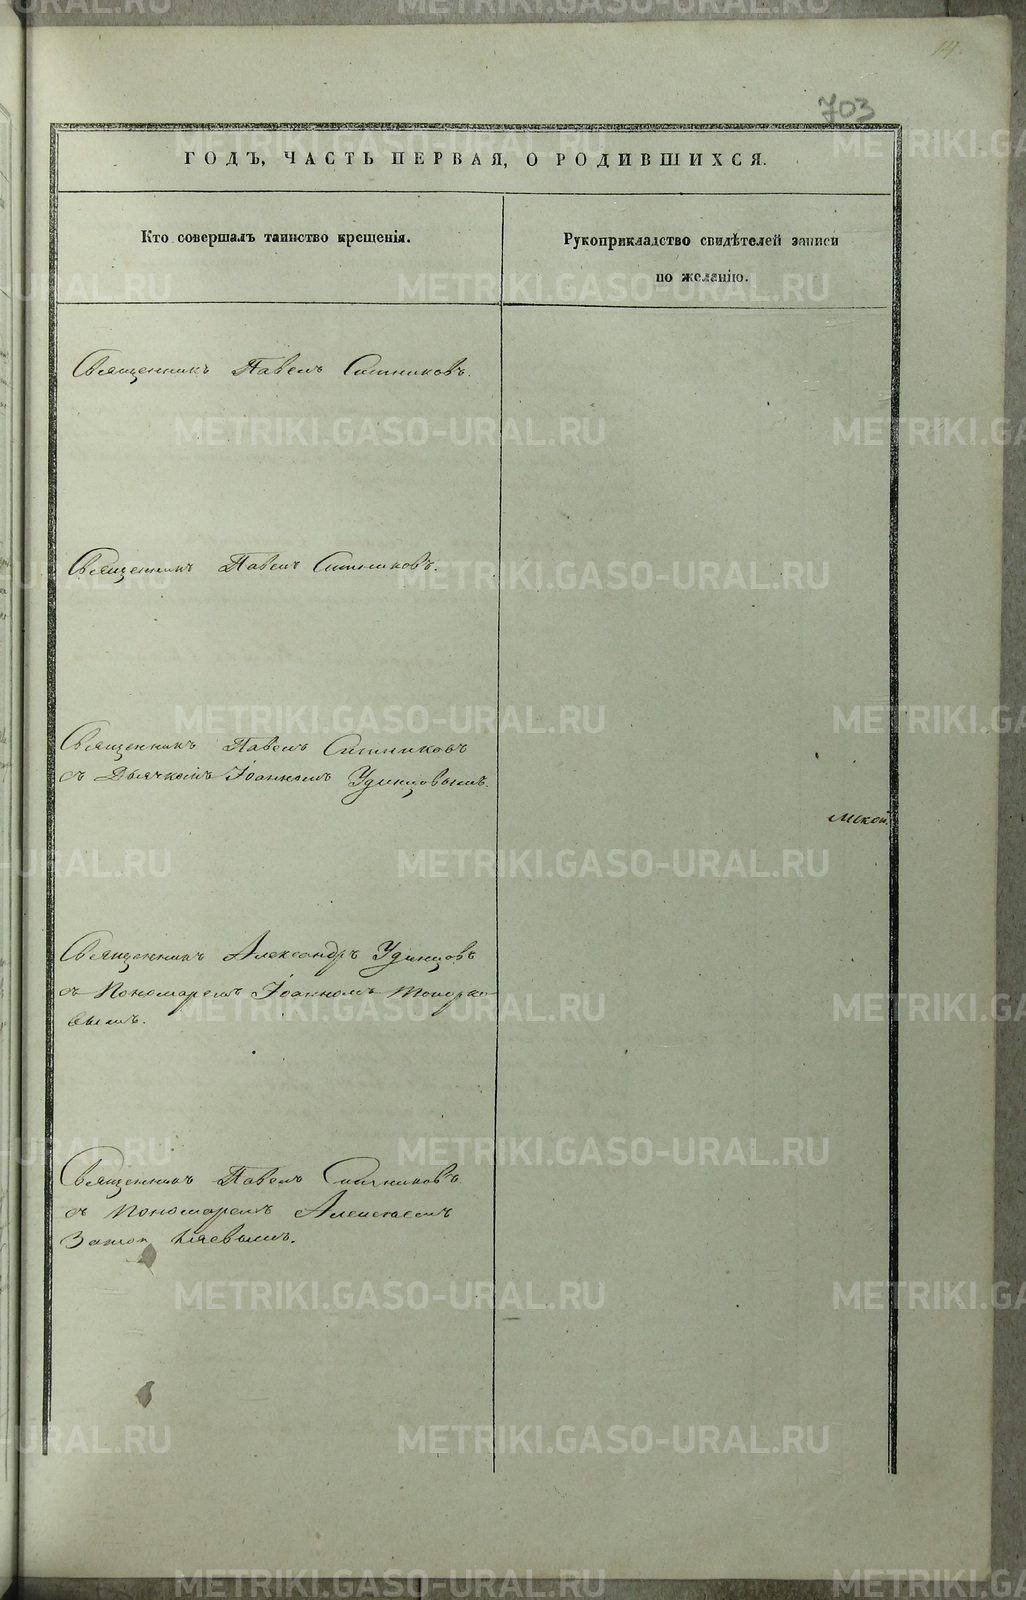 14.
703
ГОДЪ, ЧАСТЬ ПЕРВАЯ, О РОДИВШИХСЯ.
Кто совершалъ таинство крещенія.
Рукоприкладство свидѣтелей записи
по желанію.
Священникъ Павелъ Ситниковъ.
Священникъ Павелъ Ситниковъ.
Священникъ Павелъ Ситниковъ
съ Дьячкомъ Іоанномъ Удинцовымъ.
Священникъ Александръ Удинцовъ
съ Пономаремъ Іоанномъ Топорко-
вымъ.
Священникъ Павелъ Ситниковъ
съ Пономаремъ Алексѣемъ
METRIKI.GASO-URAL.RU